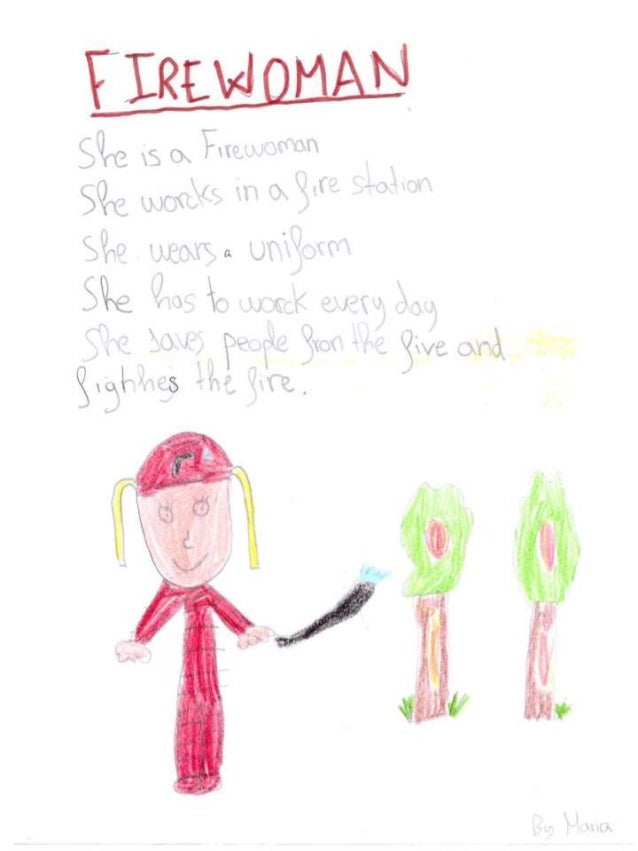 FIREWOMAN
She is a Firewoman
She worcks in a fire station
She wears a uniform
She has to worck every day
She saves people fron the five and
fighhes the fire.
By Maria